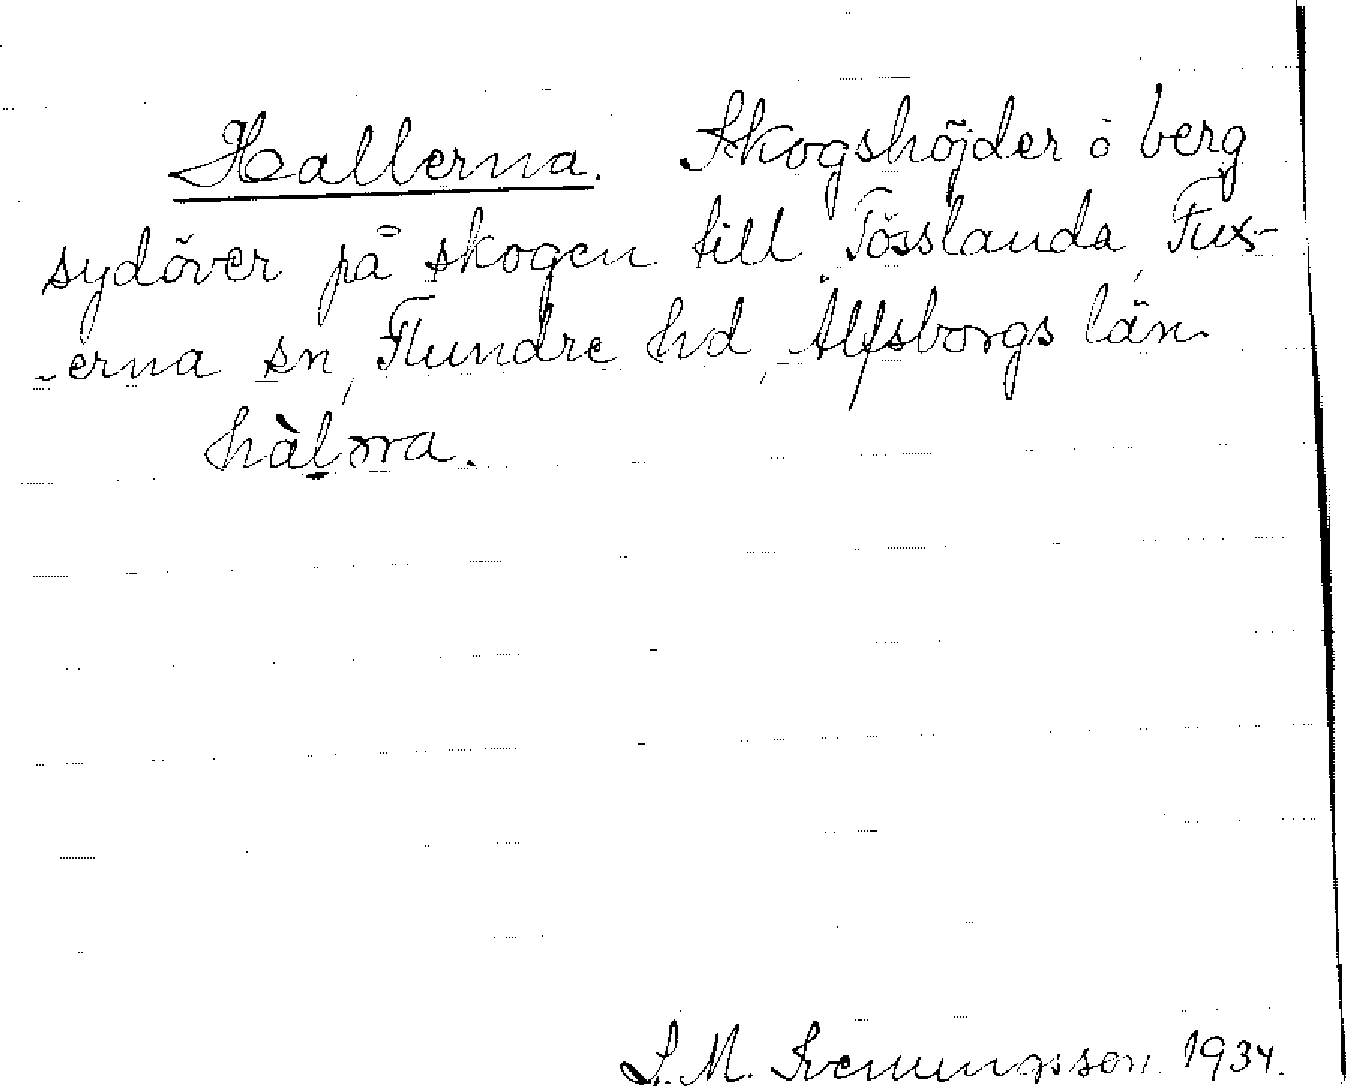 Hallerna. Skogshöjder o berg
sydöver på skogen till Tösslanda Fux-
-erna sn, Flundre hd, Älfsborgs län
S. M. Svenungsson 1934.